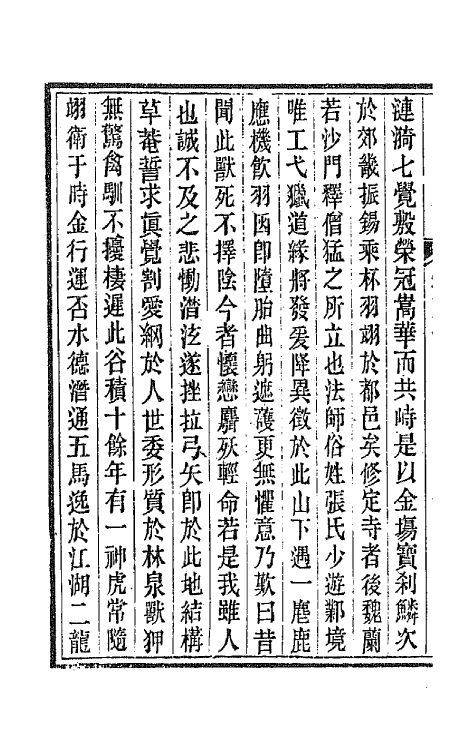 漣漪七覺敷榮冠嵩華而共峙是以金塲寶刹鱗次
於郊畿振錫乘杯羽翊於都邑矣修定寺者後魏蘭
若沙門釋僧猛之所立也法師俗姓張氏少遊鄴境
唯工弋獵道緣將發爰降異徵於此山下遇一麀鹿
應機飲羽因卽墮胎曲躬遮護更無懼意乃歎曰昔
聞此獸死不擇陰今者懷戀麛殀輕命若是我雖人
也誠不及之悲慟潸泫遂挫拉弓矢卽於此地結構
草菴誓求眞覺割愛網於人世委形質於林泉獸狎
無驚禽馴不擾棲遲此谷積十餘年有一神虎常隨
翊衛于時金行運否水德潛通五馬逸於江湖二龍